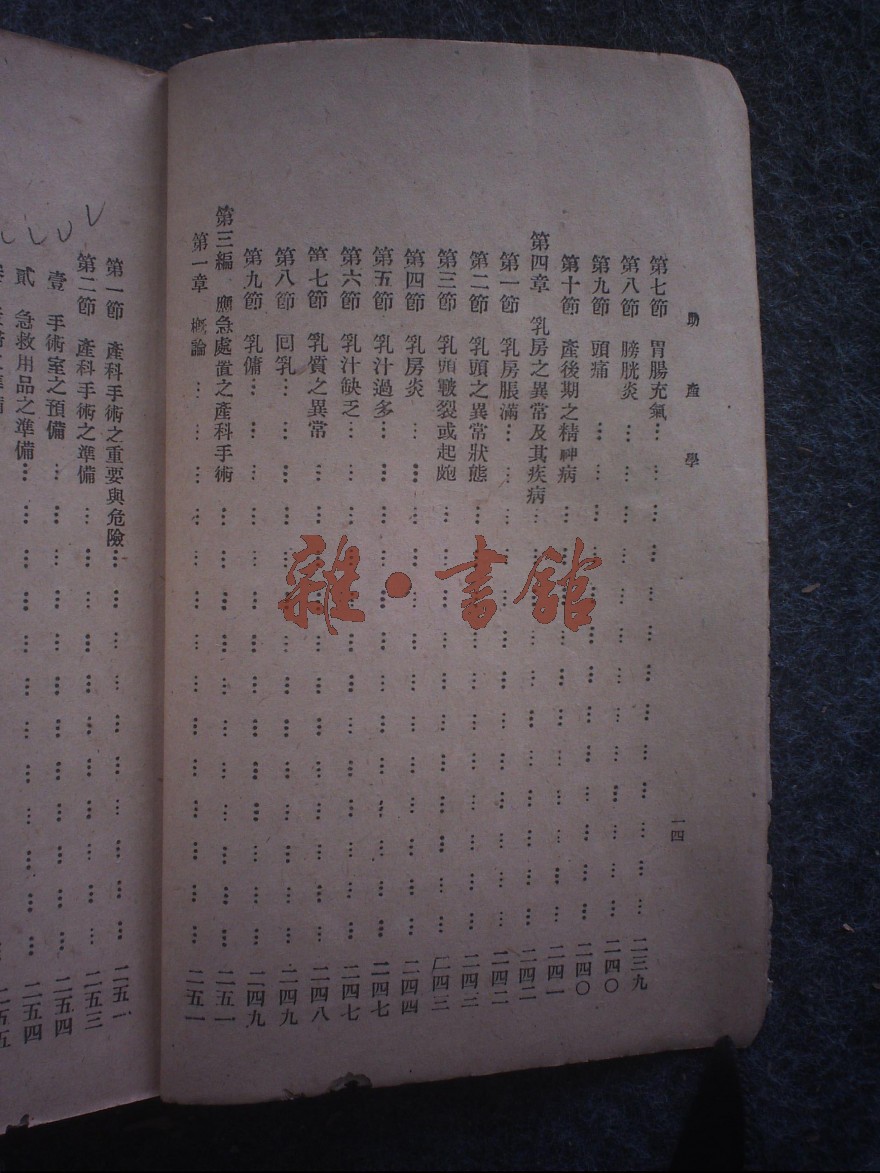 助產學
一四
第七節 胃腸充氣 二三九
第八節 膀胱炎 二四〇
第九節 頭痛 二四〇
第十節 產後期之精神病 二四一
第四章 乳房之異常及其疾病 二四二
第一節 乳房脹滿 二四二
第二節 乳頭之異常狀態 二四三
第三節 乳頭皸裂或起皰 二四三
第四節 乳房炎 二四四
第五節 乳汁過多 二四七
第六節 乳汁缺乏 二四七
第七節 乳質之異常 二四八
第八節 回乳 二四九
第九節 乳傭 二四九
第三編 應急處置之產科手術 二五一
第一章 概論 二五一
第一節 產科手術之重要與危險 二五一
第二節 產科手術之準備 二五三
壹 手術室之預備 二五四
貳 急救用品之準備 二五四
二五五
雜·書館